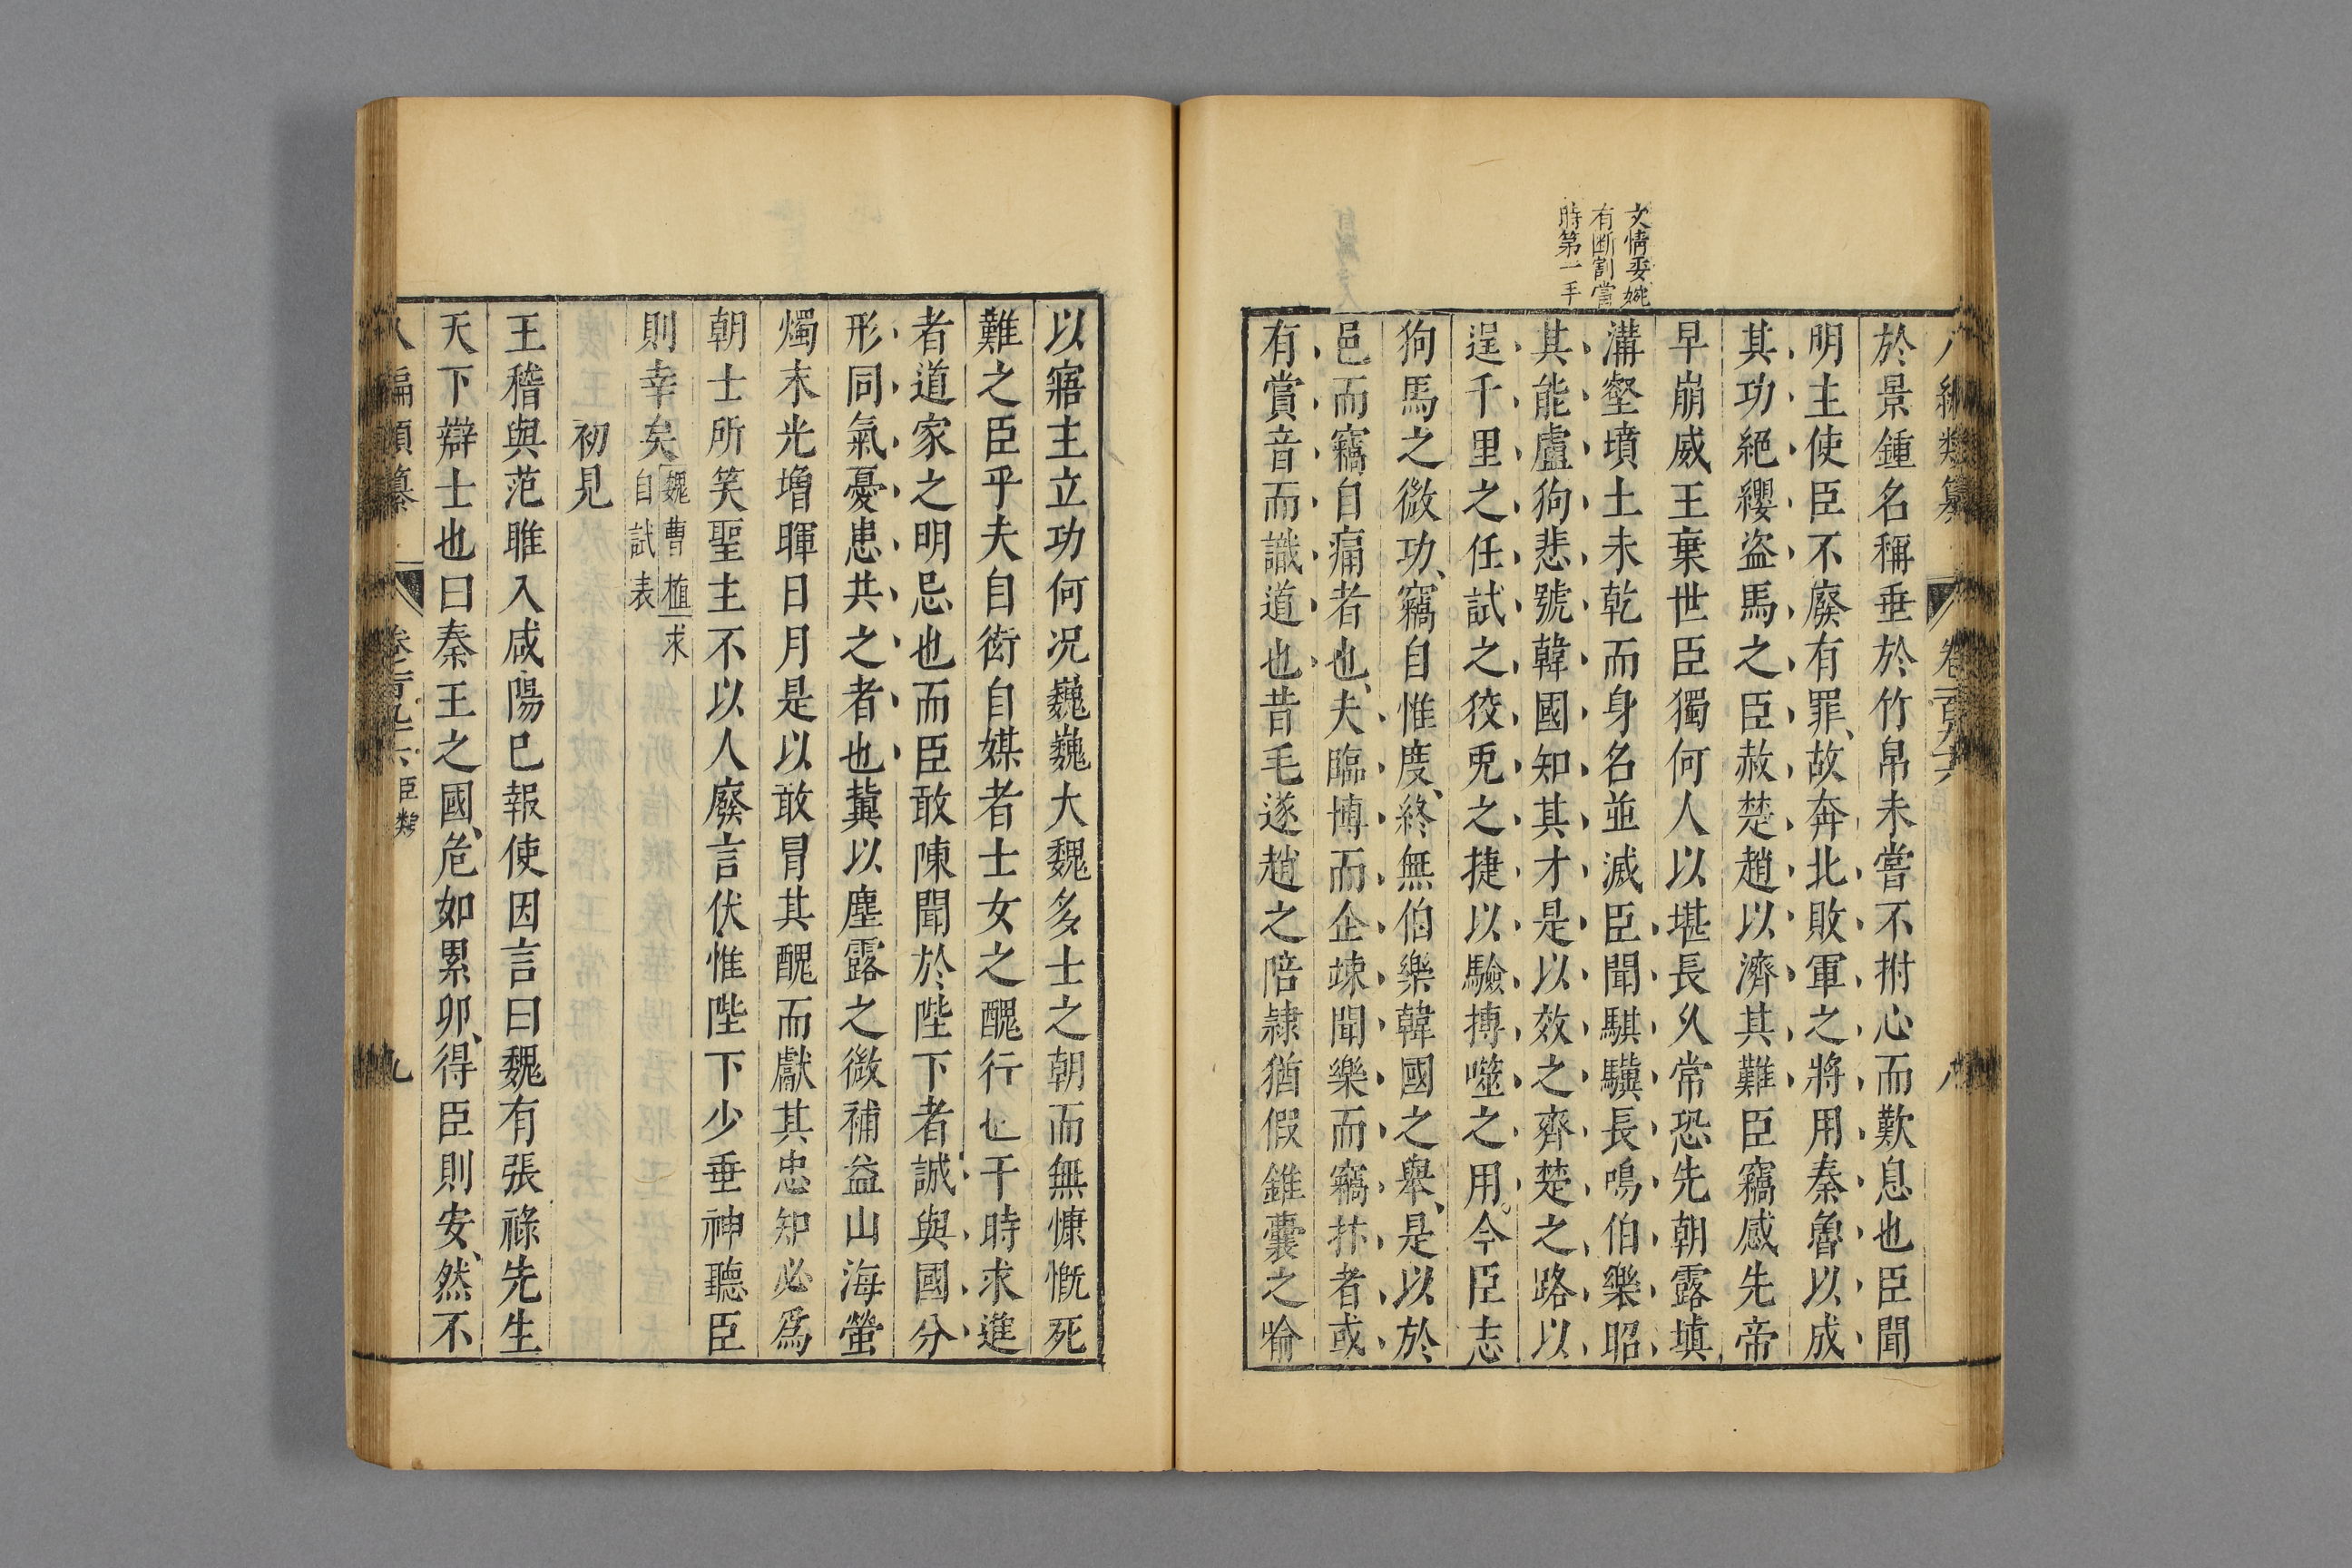 八編類纂 卷一百九十六 八
文情委婉
有断割當
時第一手
於景鍾名稱垂於竹帛未嘗不拊心而歎息也臣聞
明主使臣不廢有罪、故奔北敗軍之將用秦魯以成
其功絕纓盗馬之臣赦楚趙以濟其難臣竊感先帝
早崩威王棄世臣獨何人以堪長久常恐先朝露填
溝壑墳土未乾而身名並滅臣聞騏驥長鳴伯樂昭
其能盧狗悲號韓國知其才是以效之齊楚之路以
逞千里之任試之狡兎之捷以驗搏噬之用。今臣志
狗馬之微功、竊自惟度、終無伯樂韓國之舉、是以於
邑而竊自痛者也、夫臨博而企竦聞樂而竊抃者或
有賞音而識道也昔毛遂趙之陪隷猶假錐囊之喻
以寤主立功何况巍巍大魏多士之朝而無慷慨死
難之臣乎夫自衒自媒者士女之醜行也干時求進
者道家之明忌也而臣敢陳聞於陛下者誠與國分
形同氣憂患共之者也冀以塵露之微補益山海螢
燭末光增暉日月是以敢冒其醜而獻其忠知必爲
朝士所笑聖主不以人廢言伏惟陛下少垂神聽臣
則幸矣魏曹植求
自試表
初見
王稽與范睢入咸陽已報使因言曰魏有張祿先生
天下辯士也曰秦王之國、危如累卵、得臣則安、然不
八編類纂 卷一百九十六 臣類 九